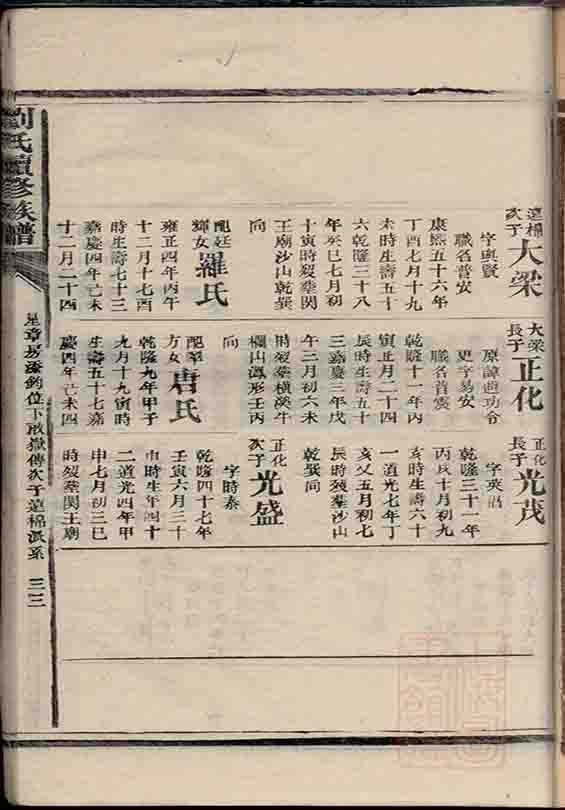 遠楊次子大梁
字興賢
職名普安
康熙五十六年
丁酉七月十九
未時生壽五十
六乾隆三十八
年癸巳七月初
十寅時歿葬関
王廟沙山乾巽
向
配廷輝女羅氏
雍正四年丙午
十二月十七酉
時生壽七十三
嘉慶四年己未
十二月二十四
大梁長子正化
原諱 功令
更字易安
職名普震
乾隆十一年丙
寅正月二十四
辰時生壽五十
三嘉慶三年戊
午三月初六未
時歿葬橫溪牛
欄山 形壬丙
向
配 方女唐氏
乾隆九年甲子
九月十九寅時
生壽五十七嘉
慶四年己未四
正化長子光茂
字英
乾隆三十一年
丙戌十月初九
亥時生壽六十
一道光七年丁
亥 五月初七
辰時歿葬沙山
乾巽向
正化次子光盛
字時泰
乾隆四十七年
壬寅六月三十
申時生年四十
二道光四年甲
申七月初三巳
時歿葬関王廟
劉氏續修族譜
星章房 鈞位下啟嶽傳次子遠楊派系 三三